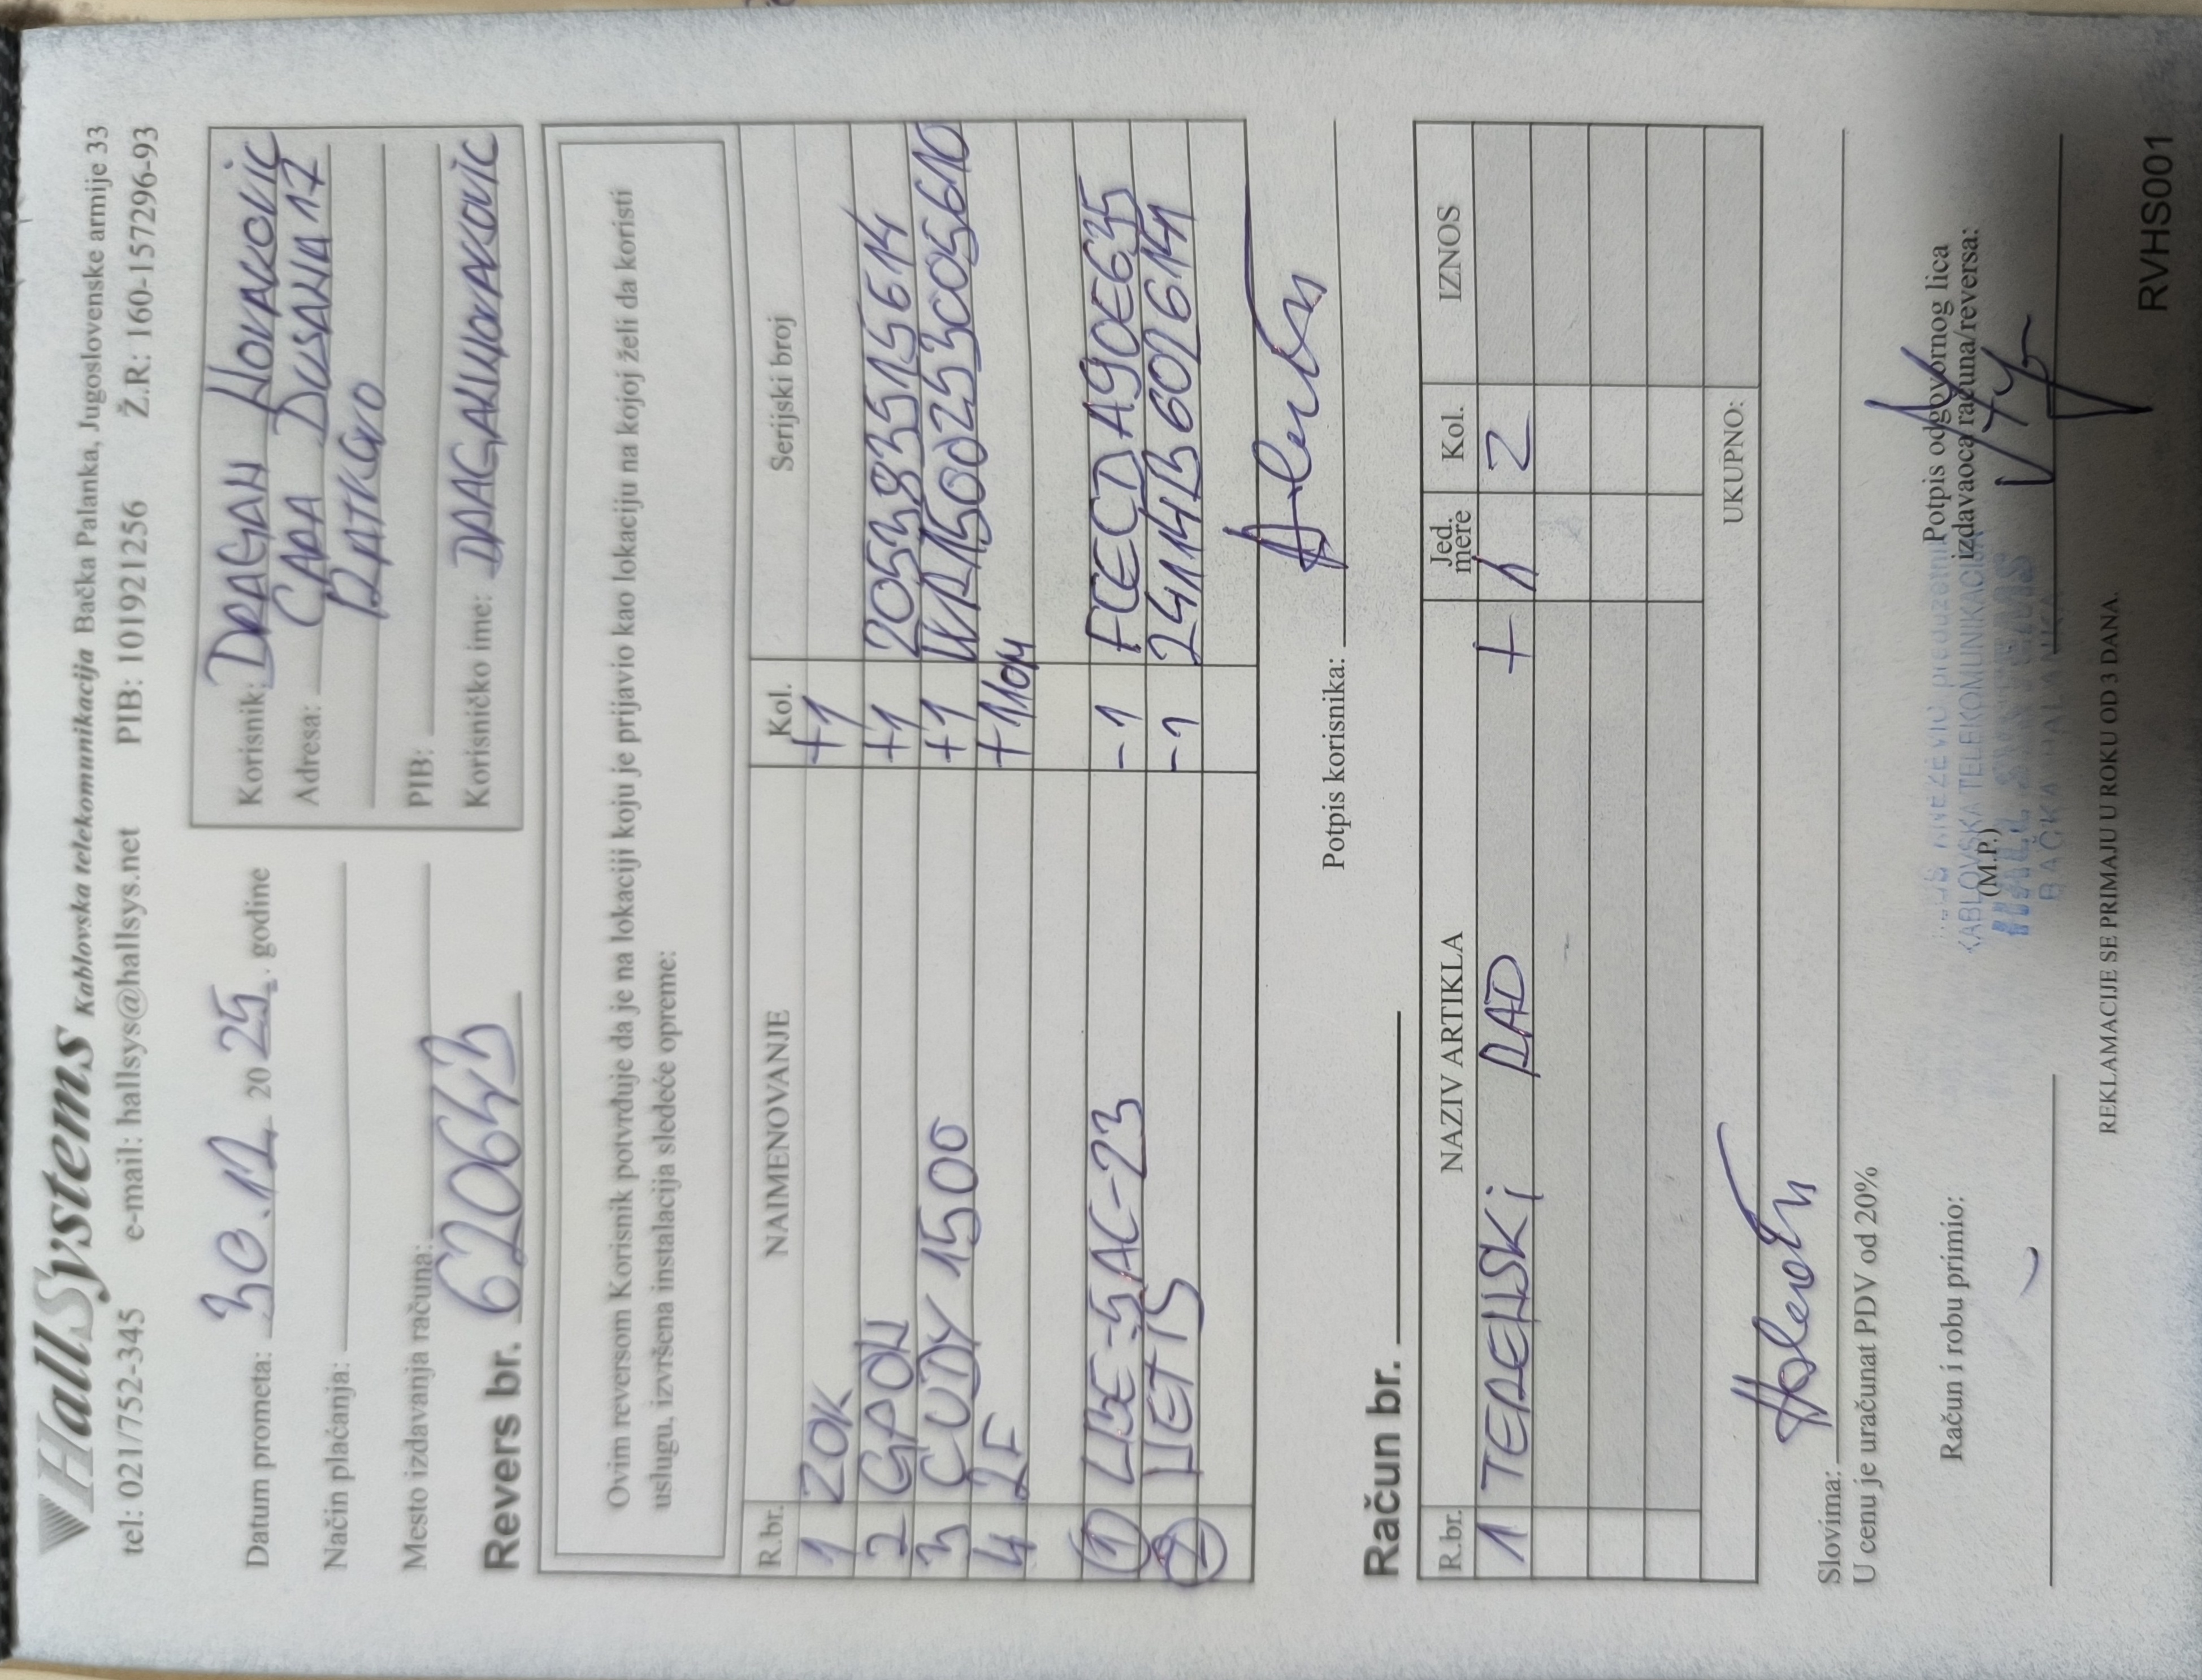 HallSystems Kablovska telekomunikacija Bačka Palanka, Jugoslovenske armije 33
tel: 021/752-345 e-mail: hallsys@hallsys.net PIB: 101921256 Ž.R.: 160-157296-93
Datum prometa: 30.12. 2025. godine
Način plaćanja:
Mesto izdavanja računa:
Korisnik: DRAGAN NOVAKOVIC
Adresa: CARA DUSANA 17
RATKOVO
PIB:
Korisničko ime: DRAGANNOVAKOVIC
Revers br. 62064B
Ovim reversom Korisnik potvrđuje da je na lokaciji koju je prijavio kao lokaciju na kojoj želi da koristi
uslugu, izvršena instalacija sledeće opreme:
R.br. NAIMENOVANJE Kol. Serijski broj
1 ZOK +1
2 GPON +1 205383515614
3 CUDY 1500 +1 WR1500253005610
4 2F +110M
1 LBE-5AC-23 -1 FCECDA90E635
2 NETIS -1 24114B6026141
Potpis korisnika:
Račun br.
R.br. NAZIV ARTIKLA Jed. mere Kol. IZNOS
1 TERENSKI RAD + 1 2
UKUPNO:
Slovima:
U cenu je uračunat PDV od 20%
Račun i robu primio:
(M.P.)
KABLOVSKA TELEKOMUNIKACIJA
HALL SYSTEMS
BAČKA PALANKA
Potpis odgovornog lica
izdavaoca računa/reversa:
REKLAMACIJE SE PRIMAJU U ROKU OD 3 DANA.
RVHS001